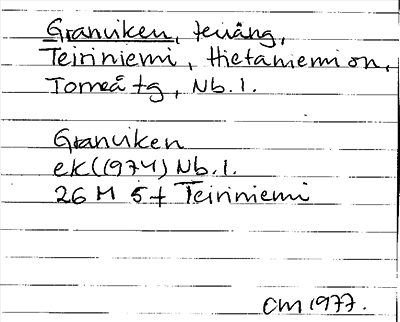 Granviken, teväng,
Teiriniemi, Hietaniemi sn,
Torneå tg, Nb. l.
Granviken
ek (1974) Nb. l.
26 M 5 f Teiriniemi
CM 1977.